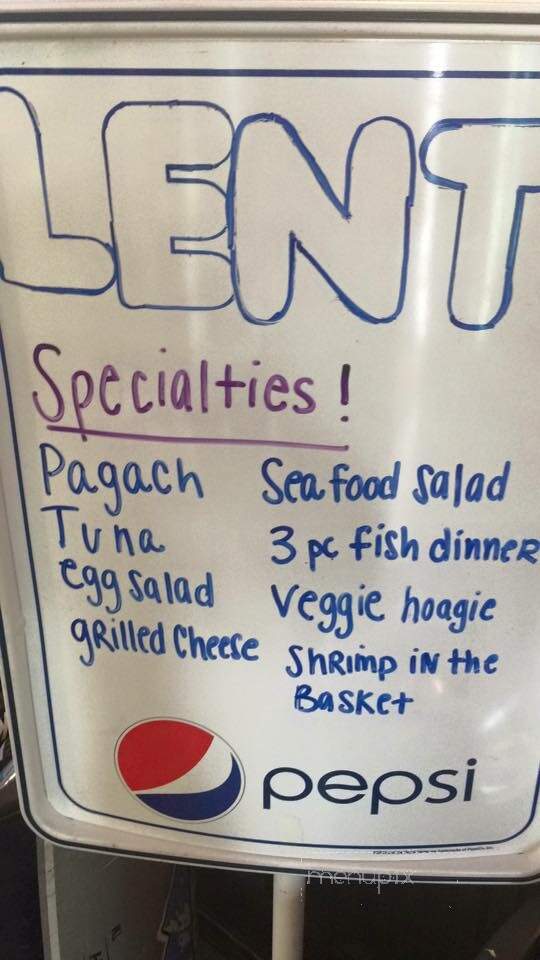 LENT
Specialties!
Pagach
Tuna
egg salad
gRilled Cheese
Seafood salad
3 pc fish dinneR
Veggie hoagie
ShRimp iN the
BaSket
pepsi
menupix